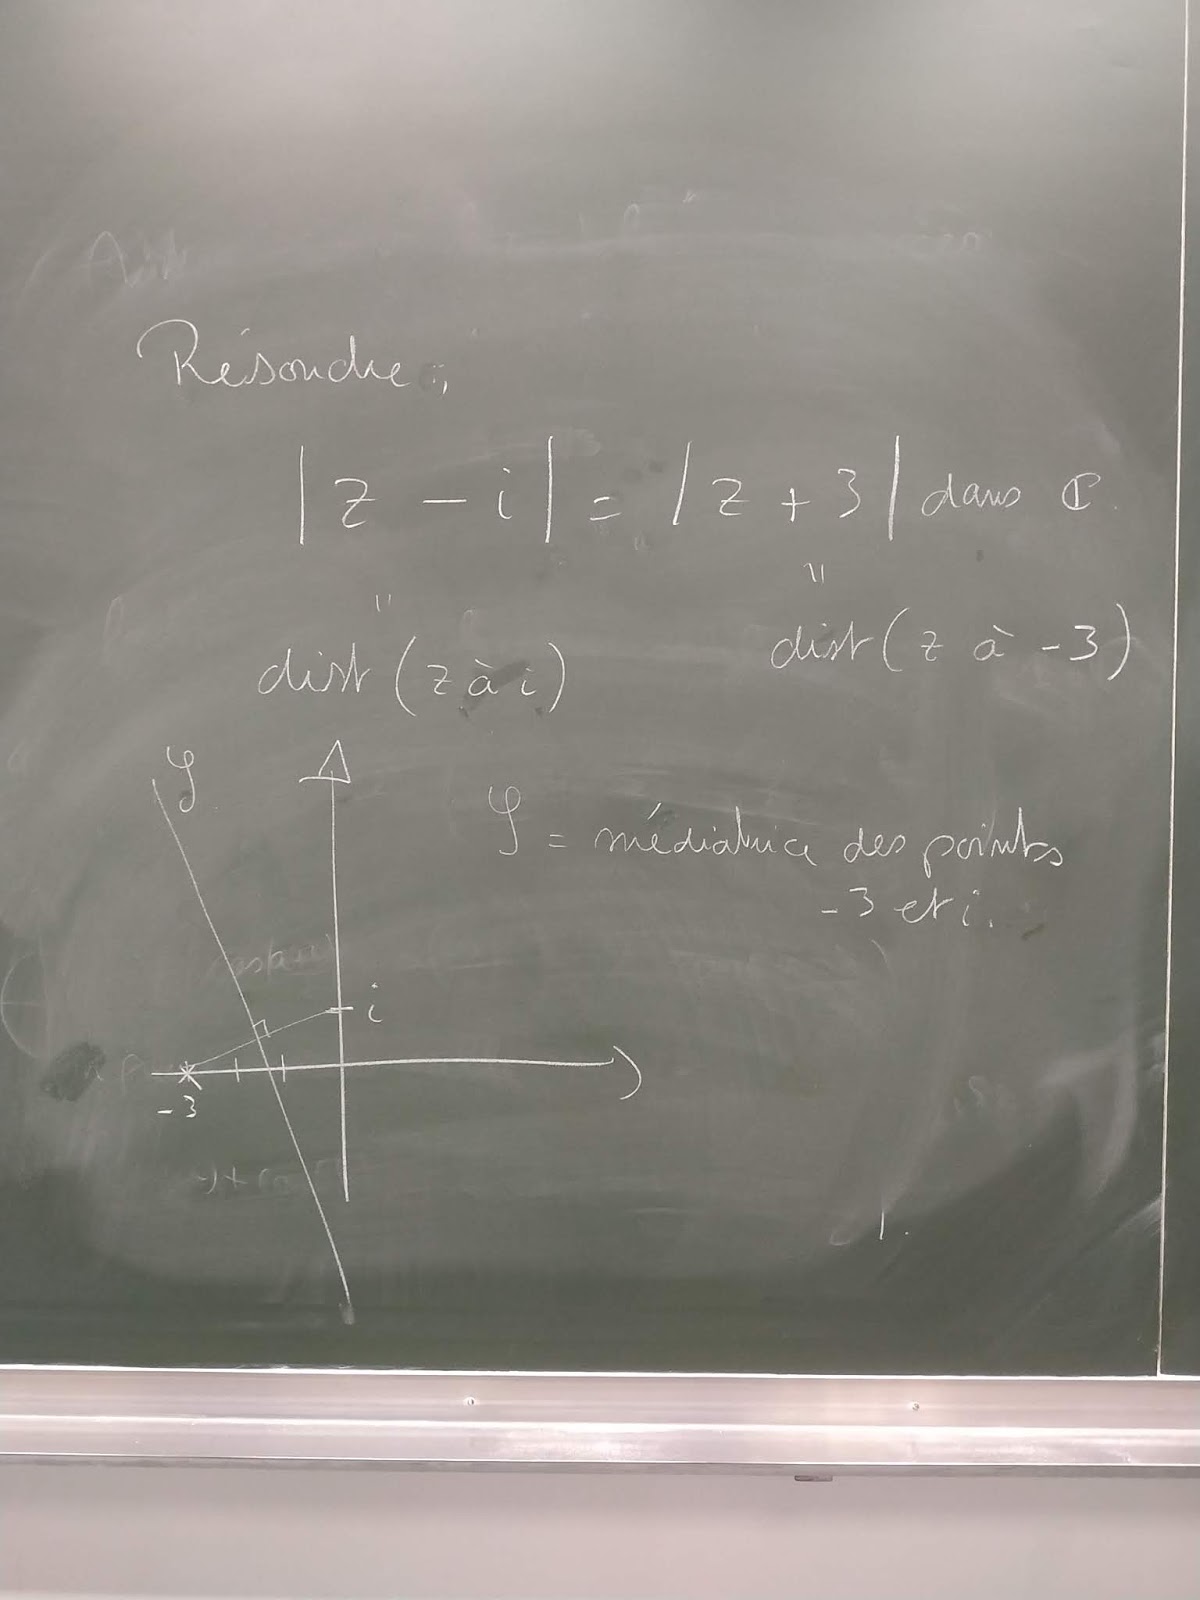 Résoudre :
|z - i| = |z + 3| dans ℂ.
" "
dist (z à i) dist (z à -3)
𝒮
𝒮 = médiatrice des points
-3 et i.
i
-3